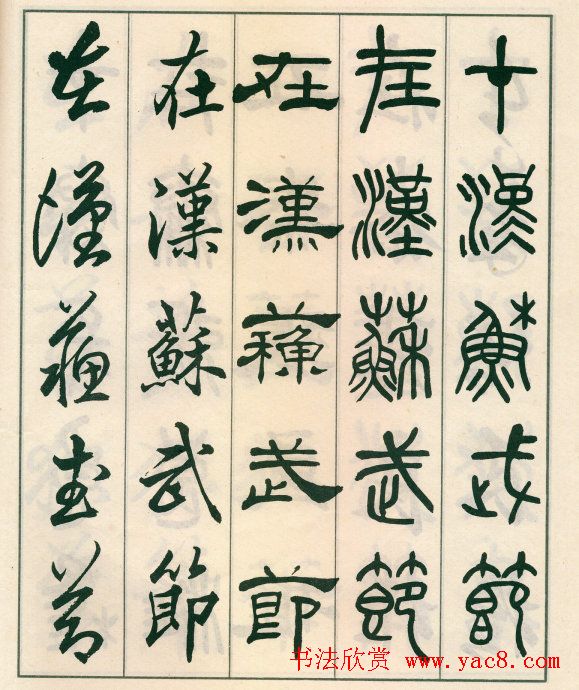 在漢蘇武節
在漢蘇武節
在漢蘇武節
在漢蘇武節
在漢蘇武節
书法欣赏 www.yac8.com